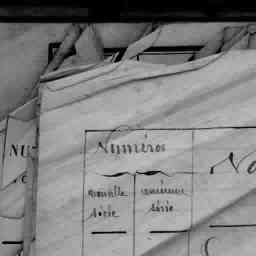 NU
Numéros
No
nouvelle ancienne
série série